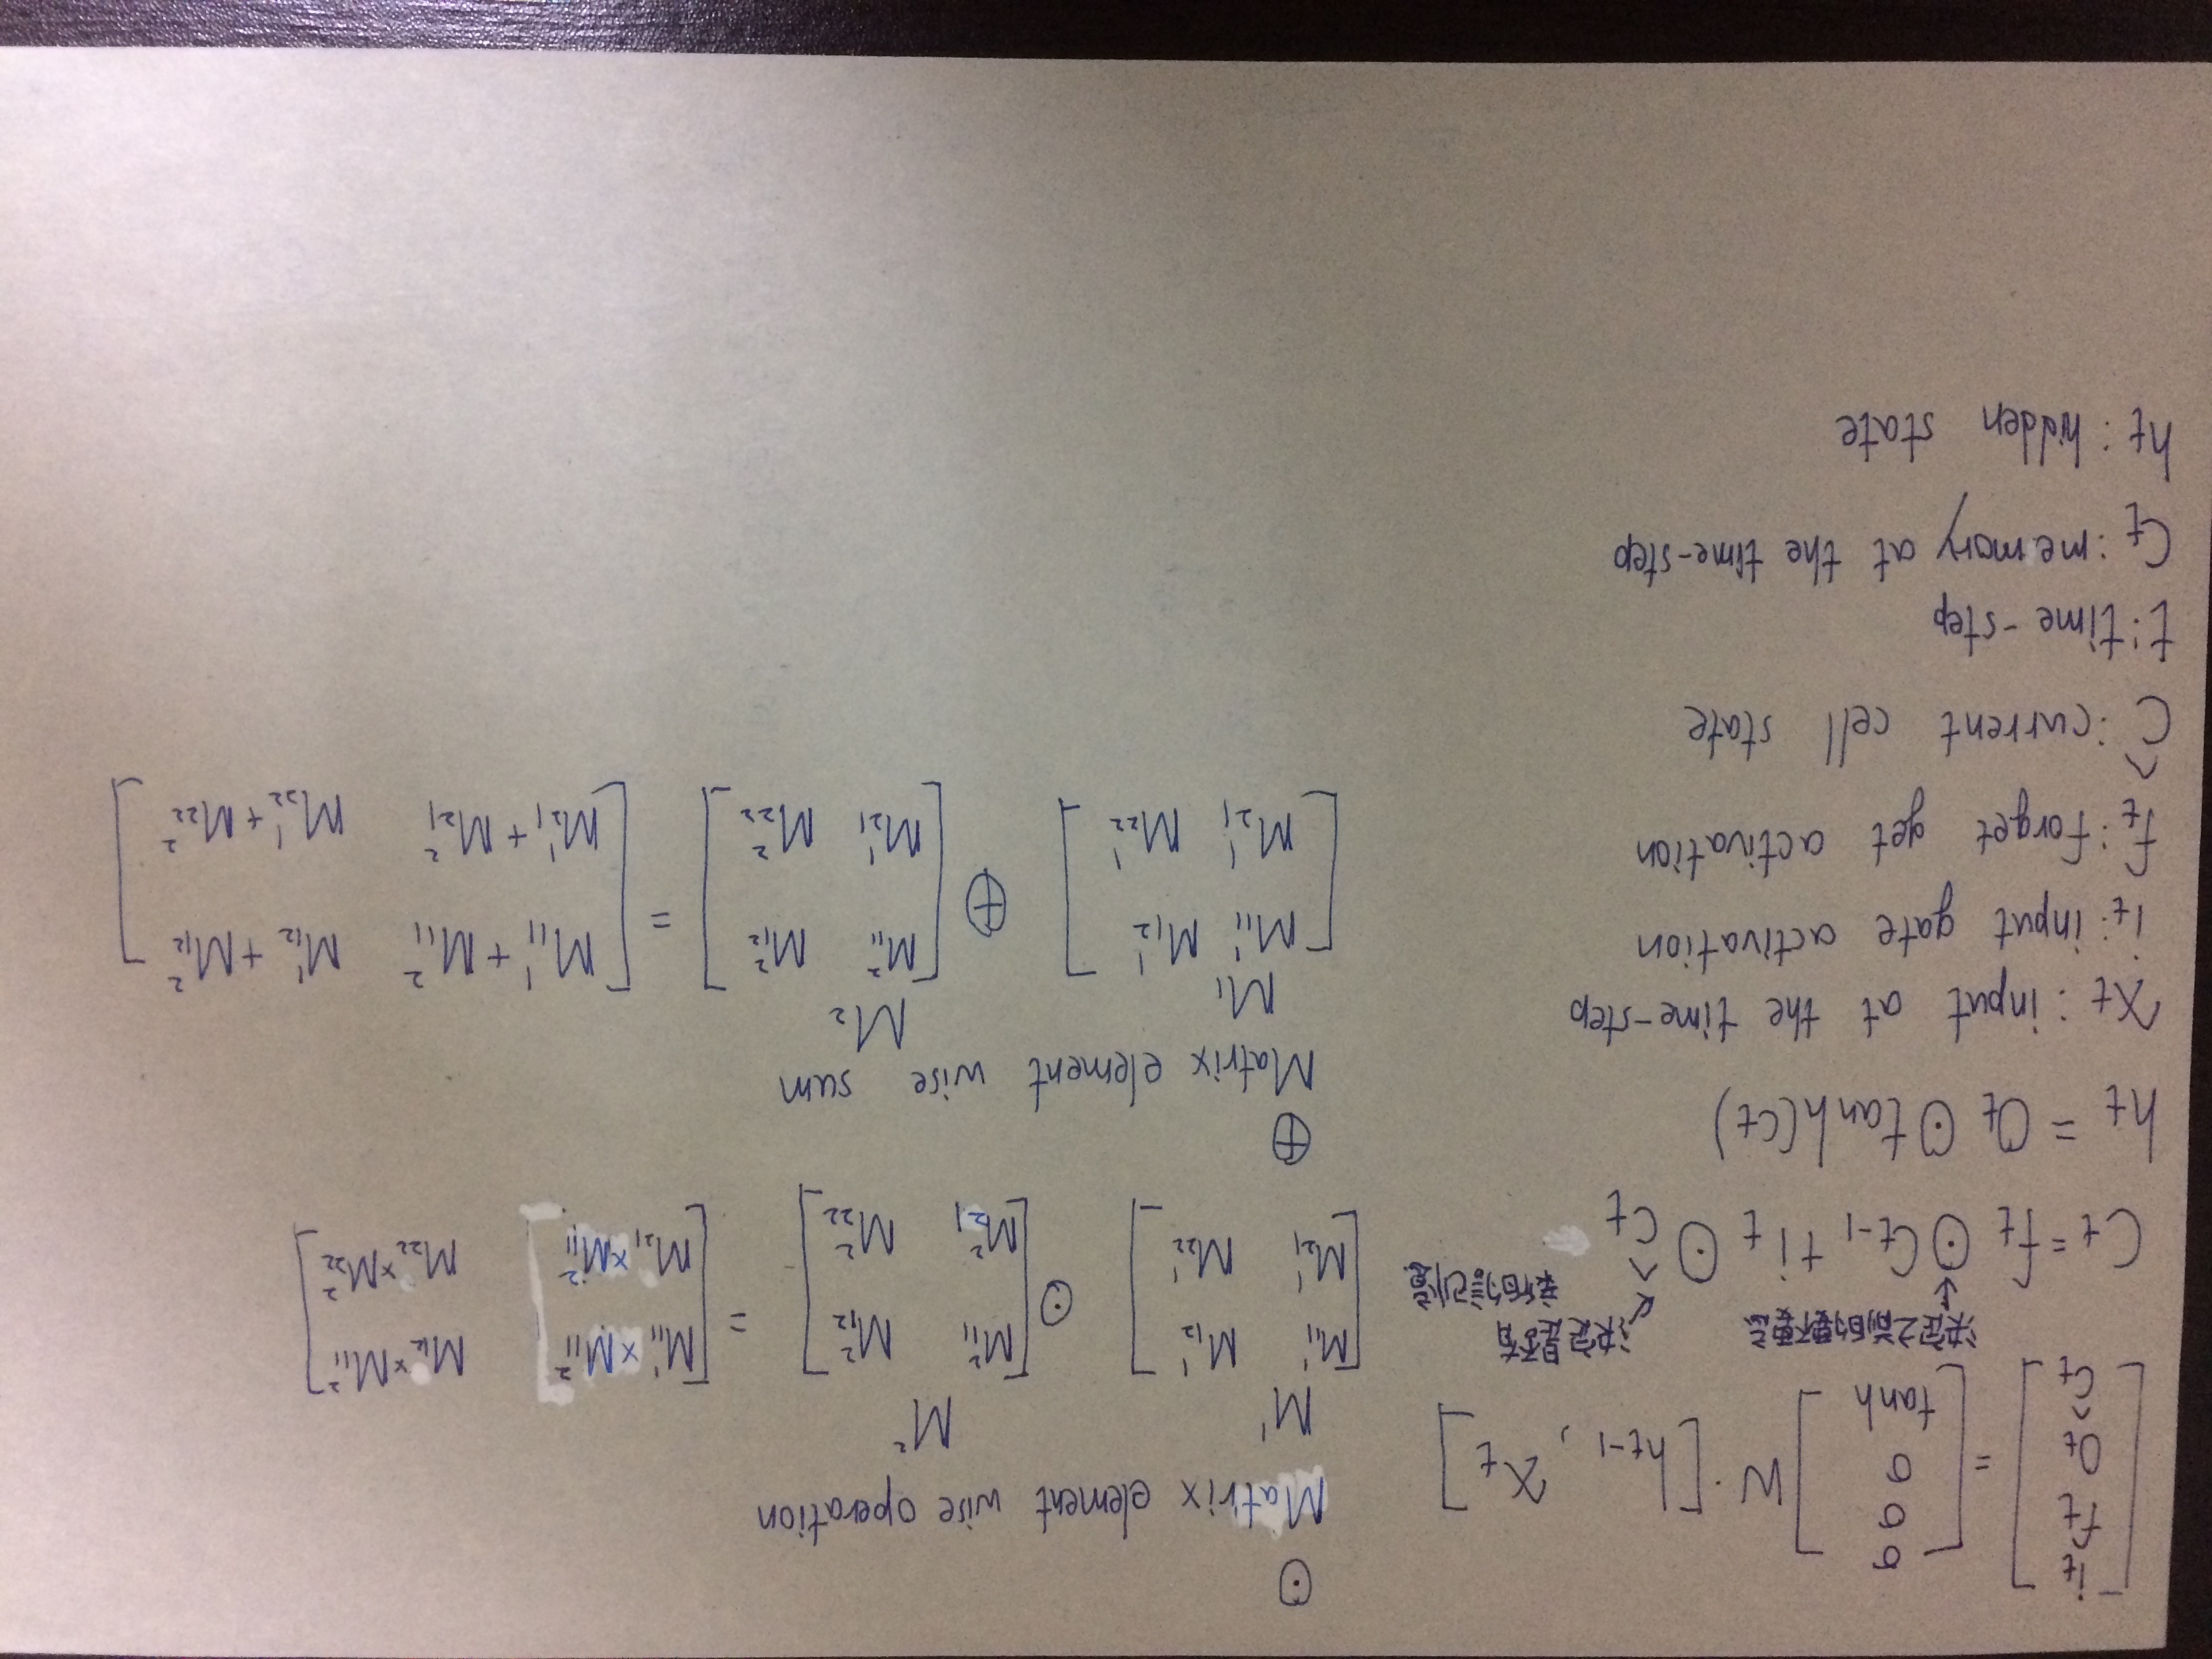 [i_t
f_t
o_t
ĉ_t] = [σ
σ
σ
tanh] W · [h_{t-1}, x_t]
決定之前的要不要忘
決定是否有
新的記憶
C_t = f_t ⊙ C_{t-1} + i_t ⊙ ĉ_t
h_t = O_t ⊙ tanh(C_t)
x_t : input at the time-step
i_t : input gate activation
f_t : forget get activation
Ĉ : current cell state
t : time-step
C_t : memory at the time-step
h_t : hidden state
⊙
Matrix element wise operation
M^1 M^2
[M_11^1 M_12^1 ⊙ [M_11^2 M_12^2 = [M_11^1 × M_11^2 M_12 × M_11^2
M_21^1 M_22^1] M_21^2 M_22^2] M_21^1 × M_11^2 M_22 × M_22^2]
⊕
Matrix element wise sum
M_1 M_2
[M_11^1 M_12^1 ⊕ [M_11^2 M_12^2 = [M_11^1 + M_11^2 M_12^1 + M_12^2
M_21^1 M_22^1] M_21^1 M_22^2] M_21^1 + M_21^2 M_22^1 + M_22^2]